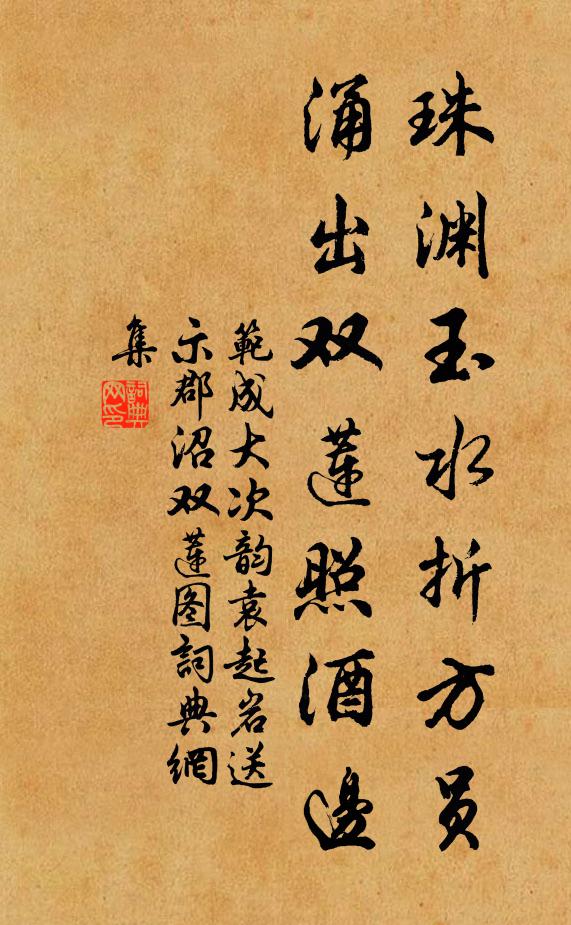 珠渊玉水折方员
涌出双莲照酒邊
範成大次韵袁起岩送
示郡沼双莲图詞典網
集
詞典网印